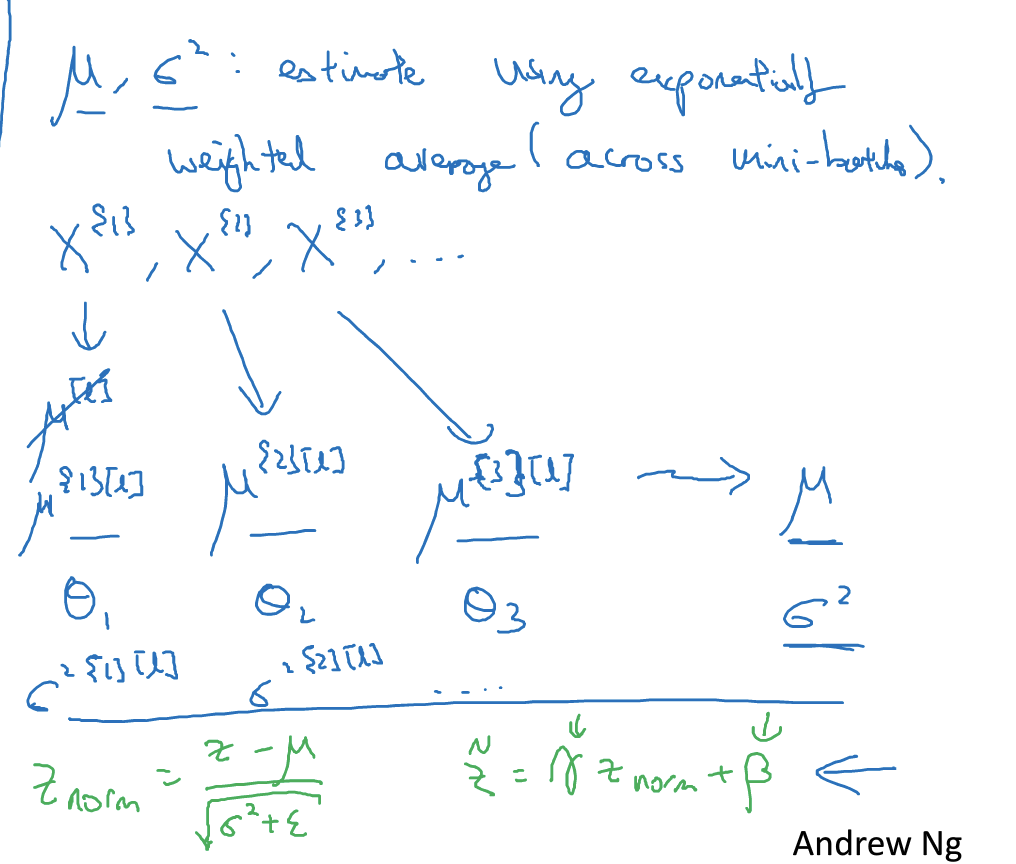 μ, σ² : estimate using exponentially
weighted average (across mini-batches).
X^{1}, X^{2}, X^{3}, ...
μ^[l]
μ^{1}[l] μ^{2}[l] μ^{3}[l] → μ
θ₁ θ₂ θ₃ σ²
σ²^{1}[l] σ²^{2}[l] ....
z_norm = (z - μ) / √(σ² + ε) z̃ = γ z_norm + β ←
Andrew Ng